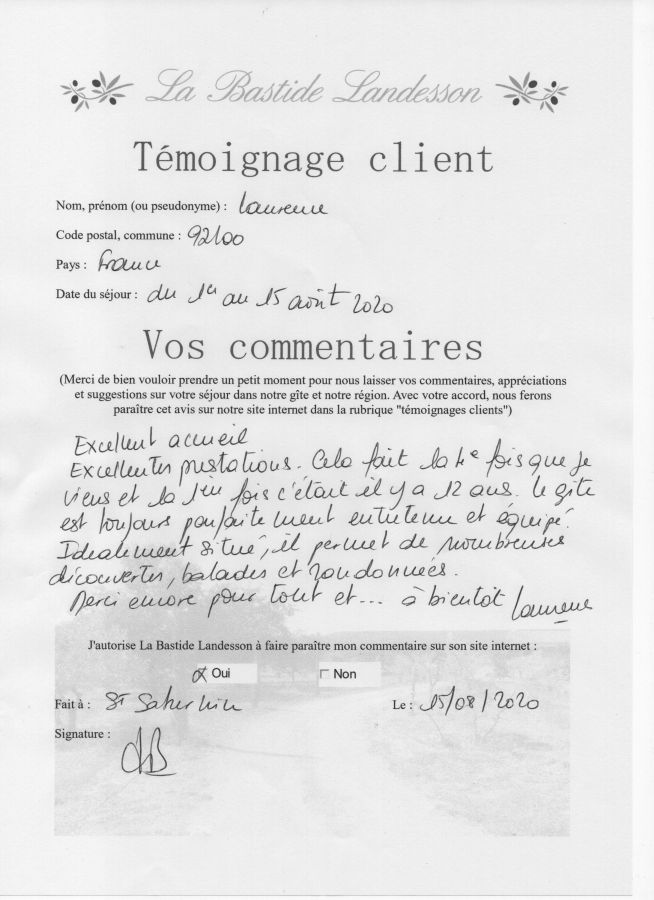 La Bastide Landesson
Témoignage client
Nom, prénom (ou pseudonyme) : Laurence
Code postal, commune : 92100
Pays : France
Date du séjour : du 1er au 15 août 2020
Vos commentaires
(Merci de bien vouloir prendre un petit moment pour nous laisser vos commentaires, appréciations
et suggestions sur votre séjour dans notre gîte et notre région. Avec votre accord, nous ferons
paraître cet avis sur notre site internet dans la rubrique "témoignages clients")
Excellent accueil
Excellentes prestations. Cela fait la 4e fois que je
viens et la 1ère fois c'était il y a 12 ans. Le gîte
est toujours parfaitement entretenu et équipé.
Idéalement situé, il permet de nombreuses
découvertes, balades et randonnées.
Merci encore pour tout et... à bientôt Laurence
J'autorise La Bastide Landesson à faire paraître mon commentaire sur son site internet :
Oui Non
Fait à : St Le : 15/08/2020
Signature :